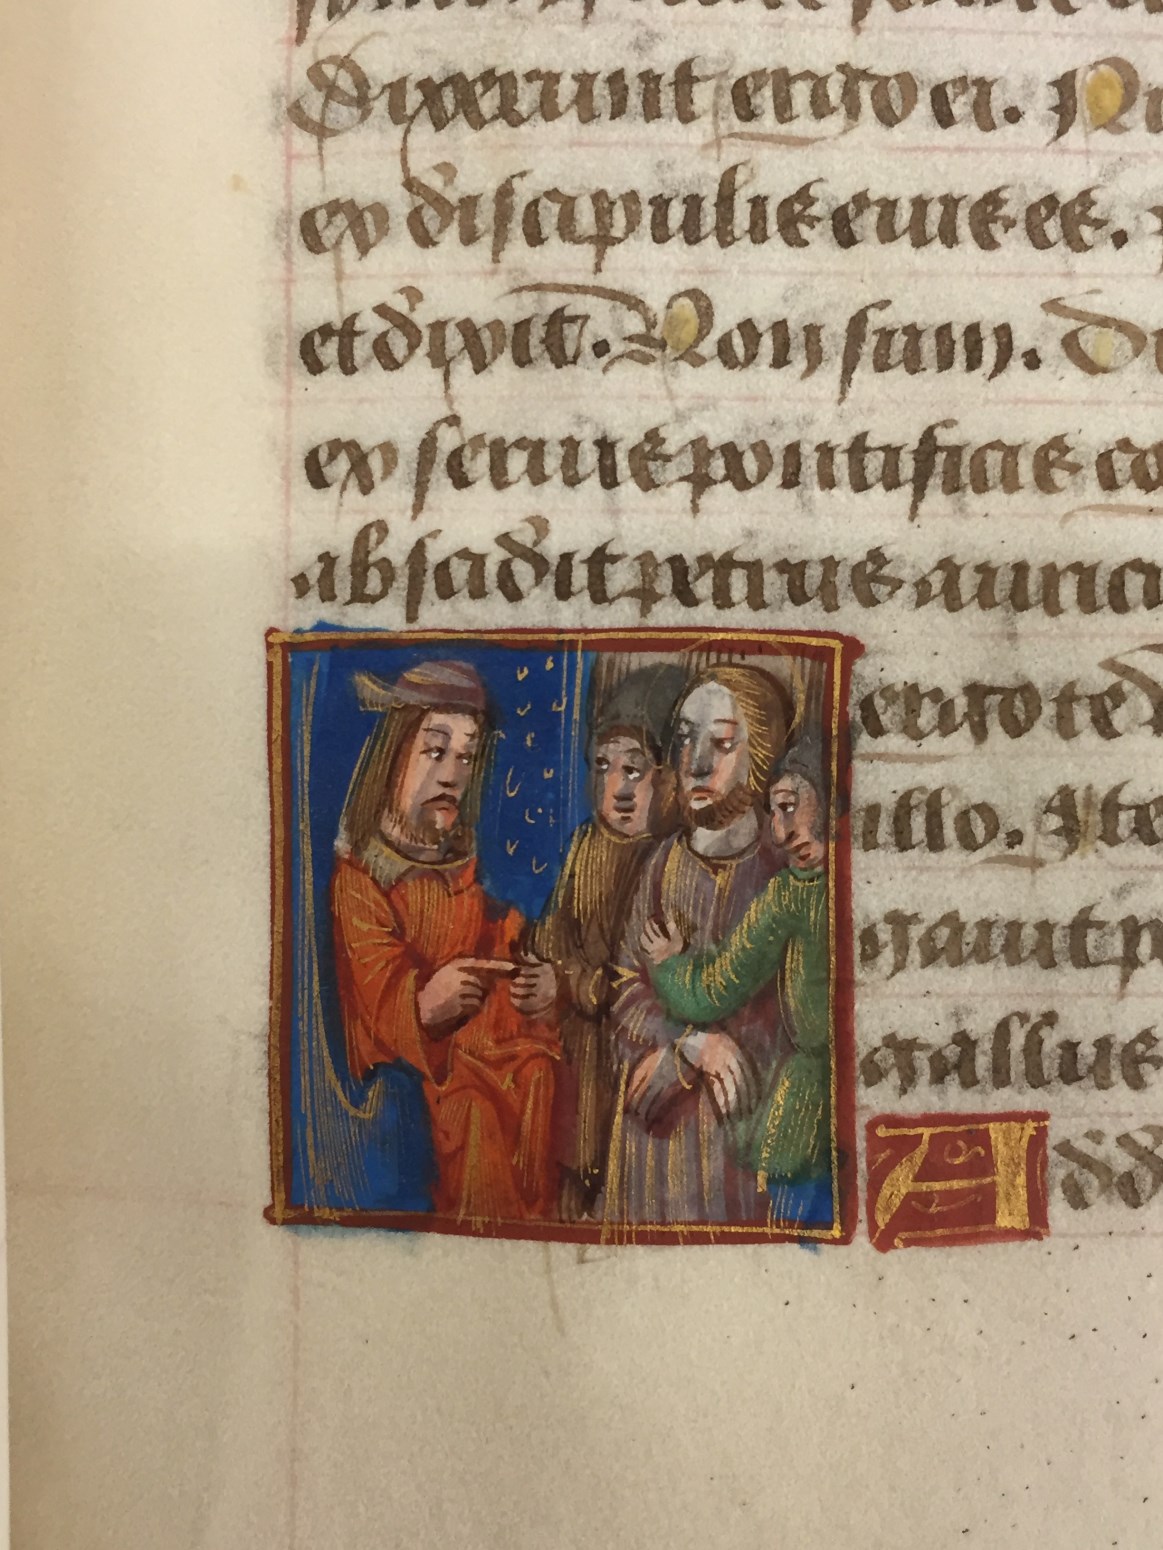 Dixerunt ergo ei. Nu
ex discipulis eius es.
et dixit. Non sum. Di
ex seruis pontificis co
abscidit petrus auricu
ergo te
illo. Ite
gauit p
gallus
Add